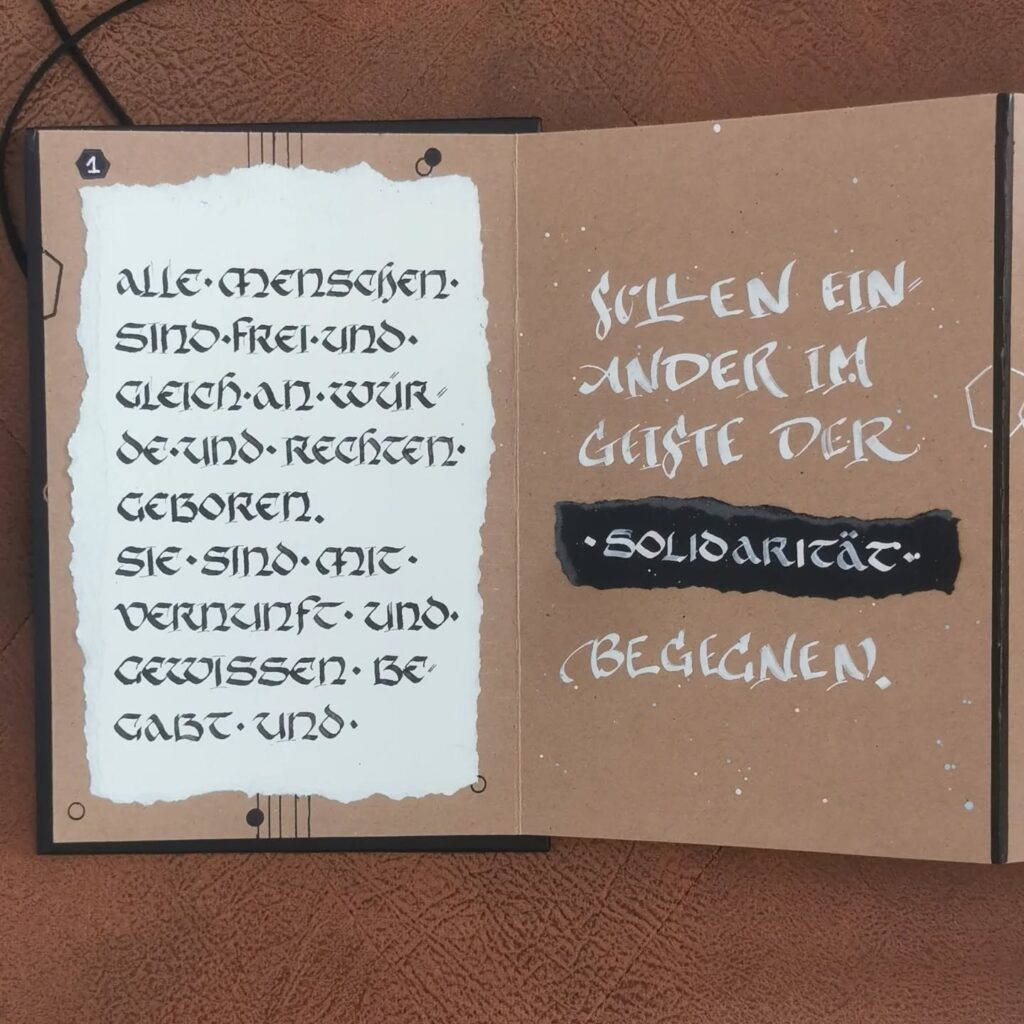 1
ALLE·MENSCHEN·
SIND·FREI·UND·
GLEICH·AN·WÜR=
DE·UND·RECHTEN·
GEBOREN.
SIE·SIND·MIT·
VERNUNFT·UND·
GEWISSEN·BE=
GABT·UND·
SOLLEN EIN=
ANDER IM
GEISTE DER
·SOLIDARITÄT·
BEGEGNEN.